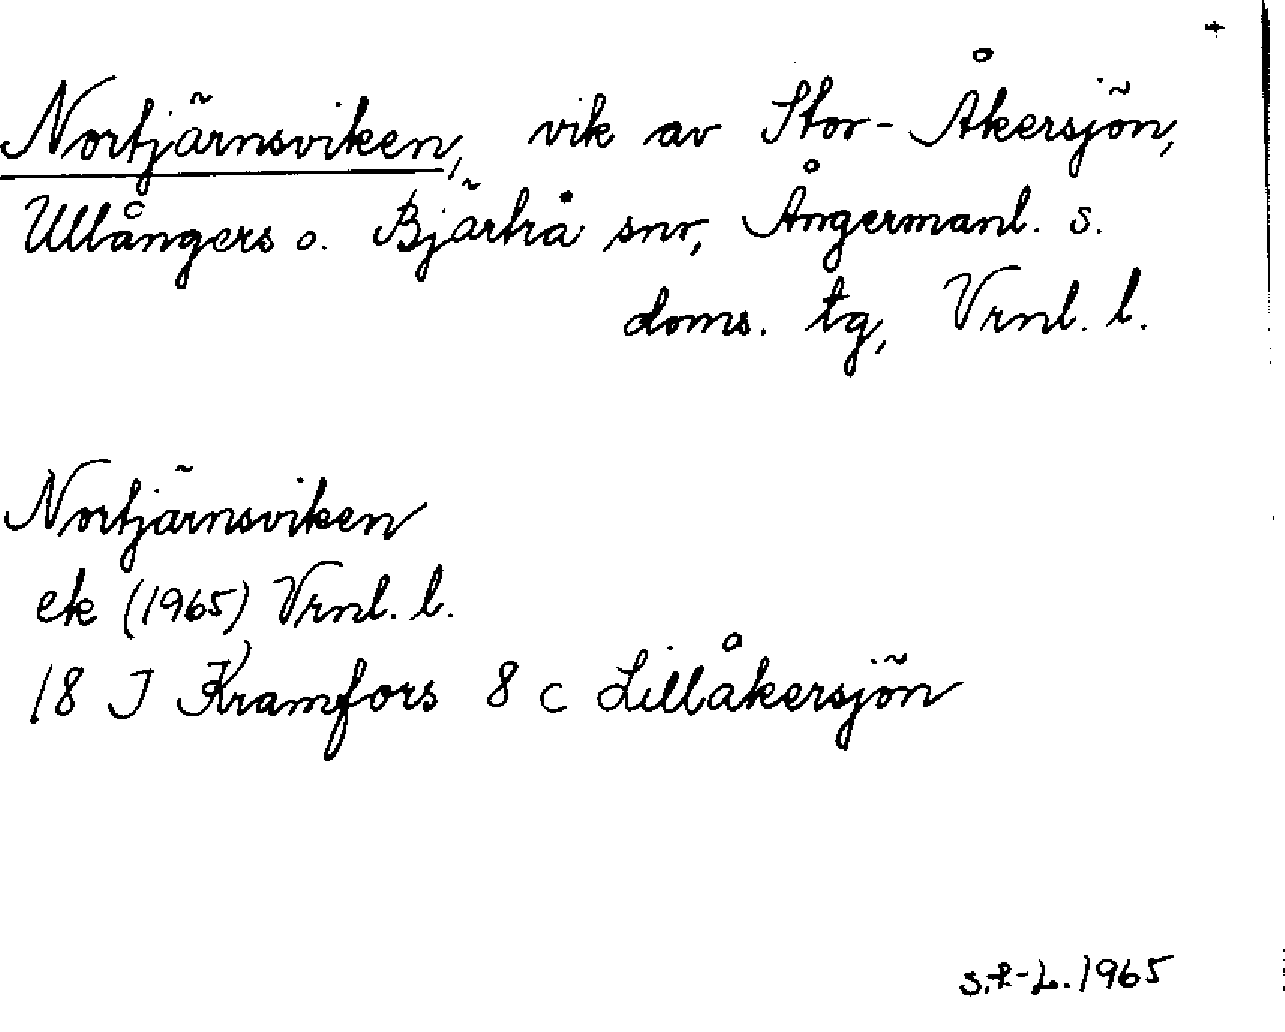 Nortjärnsviken, vik av Stor-Åkersjön,
Ullångers o. Bjärtrå snr, Ångermanl. s.
doms. tg, Vrnl. l.
Nortjärnsviken
ek (1965) Vrnl. l.
18 J Kramfors 8 c Lillåkersjön
S.F-L. 1965